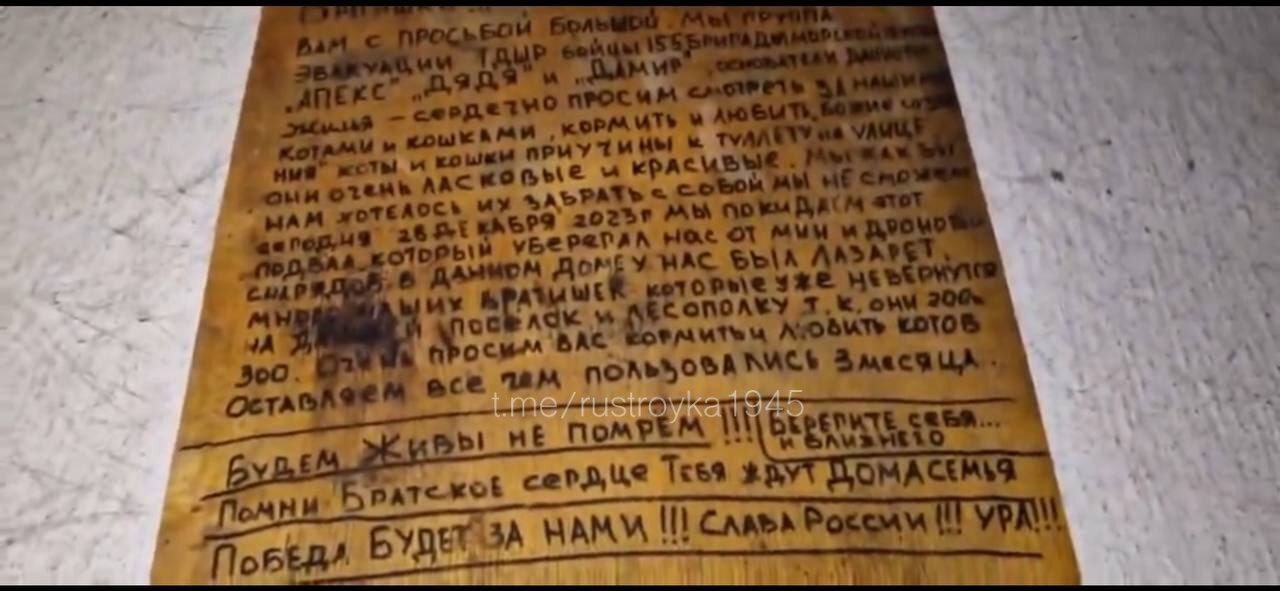 ВАМ С ПРОСЬБОЙ БОЛЬШОЙ. МЫ ГРУППА
ЭВАКУАЦИИ ТДЫР БОЙЦЫ 155 БРИГАДЫ МОРСКОЙ
"АПЕКС" "ДЯДЯ" И "ДАМИР", ОСНОВАТЕЛИ ДАННОГО
ЖИЛЬЯ – СЕРДЕЧНО ПРОСИМ СМОТРЕТЬ ЗА НАШИМИ
КОТАМИ И КОШКАМИ, КОРМИТЬ И ЛЮБИТЬ, БОЖИЕ СОЗДА
НИЯ" КОТЫ И КОШКИ ПРИУЧИНЫ К ТУЛЛЕТУ НА УЛИЦЕ
ОНИ ОЧЕНЬ ЛАСКОВЫЕ И КРАСИВЫЕ. МЫ КАК БЫ
НАМ ХОТЕЛОСЬ ИХ ЗАБРАТЬ С СОБОЙ МЫ НЕ СМОЖЕМ
СЕГОДНЯ 28 ДЕКАБРЯ 2023Г МЫ ПОКИДАЕМ ЭТОТ
ПОДВАЛ КОТОРЫЙ УБЕРЕГАЛ НАС ОТ МИН И ДРОНОВ И
СНАРЯДОВ В ДАННОМ ДОМЕ У НАС БЫЛ ЛАЗАРЕТ,
БРАТИШЕК КОТОРЫЕ УЖЕ НЕВЕРНУТСЯ
НА ПОСЕЛОК И ЛЕСОПОЛКУ Т.К. ОНИ 200Ь
300. ОЧЕНЬ ПРОСИМ ВАС КОРМИТЬ И ЛЮБИТЬ КОТОВ
ОСТАВЛЯЕМ ВСЕ ЧЕМ ПОЛЬЗОВАЛИСЬ 3 МЕСЯЦА.
t.me/rustroyka1945
БУДЕМ ЖИВЫ НЕ ПОМРЕМ !!! БЕРЕГИТЕ СЕБЯ...
И БЛИЗНЕГО
ПОМНИ БРАТСКОЕ СЕРДЦЕ ТЕБЯ ЖДУТ ДОМА СЕМЬЯ
ПОБЕДА БУДЕТ ЗА НАМИ !!! СЛАВА РОССИИ !!! УРА!!!